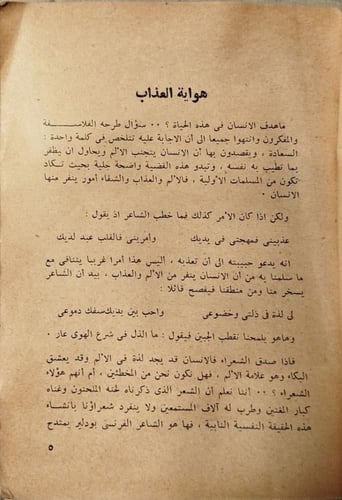 هواية العذاب
ماهدف الانسان في هذه الحياة ؟ ٠٠ سؤال طرحه الفلاسفة
والمفكرون وانتهوا جميعا الى أن الاجابة عليه تتلخص في كلمة واحدة :
السعادة ، ويقصدون بها أن الانسان يتجنب الألم ويحاول ان يظفر
بما تطيب به نفسه ، وتبدو هذه القضية واضحة جلية بحيث تكاد
تكون من المسلمات الأولية ، فالألم والعذاب والشقاء أمور ينفر منها
الانسان .
ولكن اذا كان الأمر كذلك فما خطب الشاعر اذ يقول :
عذبيني فمهجتي في يديك وأمريني فالقلب عبد لديك
انه يدعو حبيبته الى أن تعذبه ، أليس هذا أمرا غريبا يتنافى مع
ما سلمنا به من أن الانسان ينفر من الألم والعذاب ، بيد أن الشاعر
يسخر منا ومن منطقنا فيفصح قائلا :
لى لذة في ذلتي وخضوعي واحب بين يديك سفك دموعي
وهاهو يلمحنا نقطب الجبين فيقول : ما الذل في شرع الهوى عار .
فاذا صدق الشعراء فالانسان قد يجد لذة في الألم وقد يعشق
البكاء وهو علامة الألم ، فهل نكون نحن من المخطئين ، أم أنهم هؤلاء
الشعراء ؟ ٠٠ أننا نعلم أن الشعر الذى ذكرناه لحنه الملحنون وغناه
كبار المغنين وطرب له آلاف المستمعين ولا ينفرد شعراؤنا بانشاء
هذه الحقيقة النفسية النابية ، فها هو الشاعر الفرنسى بودلير يمتدح
٥